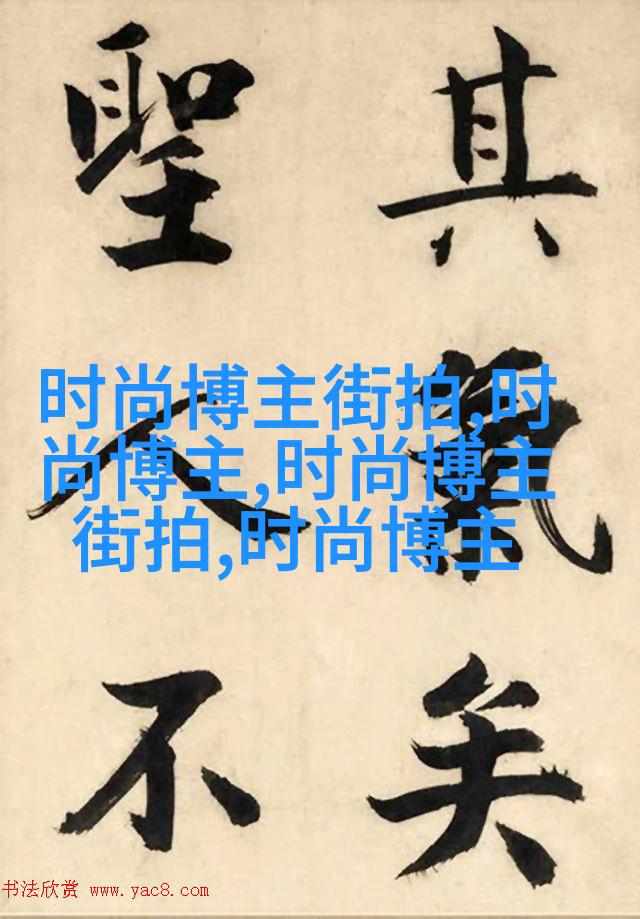 其氣矣
聖人不
时尚博主街拍,时
尚博主,时尚博主
街拍,时尚博主
书法欣赏 www.yac8.com